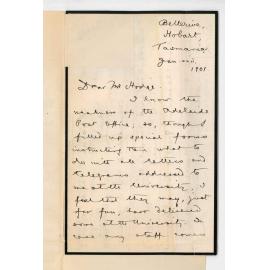 Bellerive,
Hobart,
Tasmania
Jan
1901
Dear Mr Hodge.
I know the
weakness of the Adelaide
Post Office; so, though I
filled up special forms
instructing them what to
do with all letters and
telegrams addressed to
me at the University, I
feel that they may, just
for fun, have delivered
some at the University. In
case any stuff comes